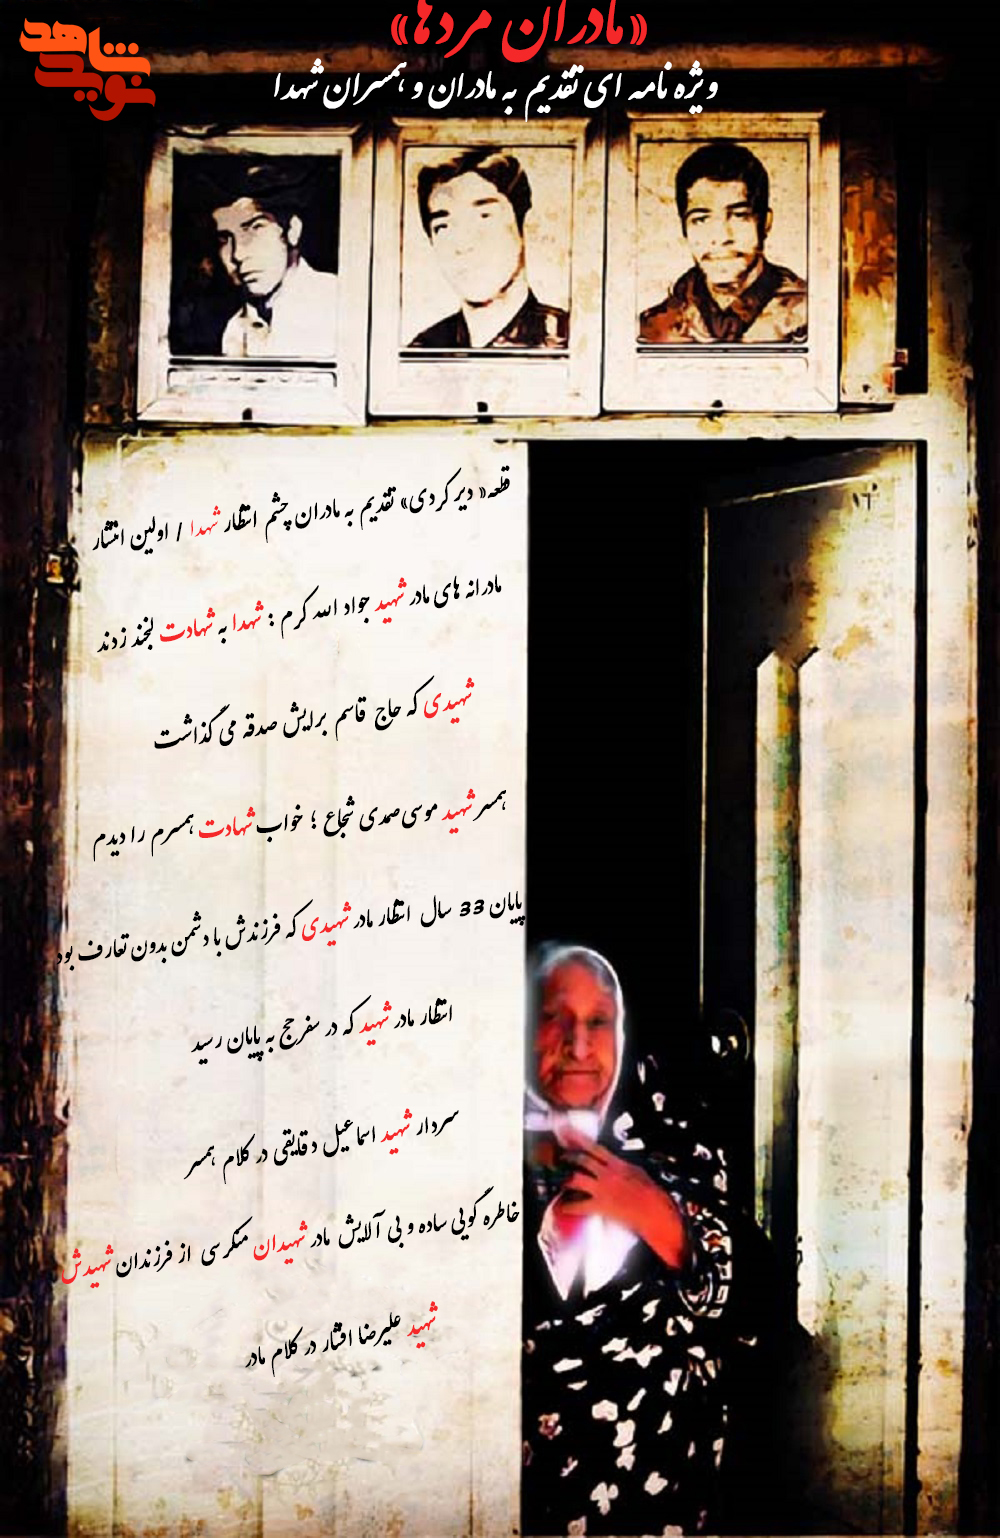 «مادران مردها»
شاهد
نوید
ویژه نامه ای تقدیم به مادران و همسران شهدا
۱۶
قطعه« دیر کردی» تقدیم به مادران چشم انتظار شهدا / اولین انتشار
مادرانه های مادر شهید جواد الله کرم : شهدا به شهادت لبخند زدند
شهیدی که حاج قاسم برایش صدقه می گذاشت
همسر شهید موسی صمدی شجاع ؛ خواب شهادت همسرم را دیدم
پایان 33 سال انتظار مادر شهیدی که فرزندش با دشمن بدون تعارف بود
انتظار مادر شهید که در سفر حج به پایان رسید
سردار شهید اسماعیل دقایقی در کلام همسر
خاطره گویی ساده و بی آلایش مادر شهیدان منکرسی از فرزندان شهیدش
شهید علیرضا افشار در کلام مادر